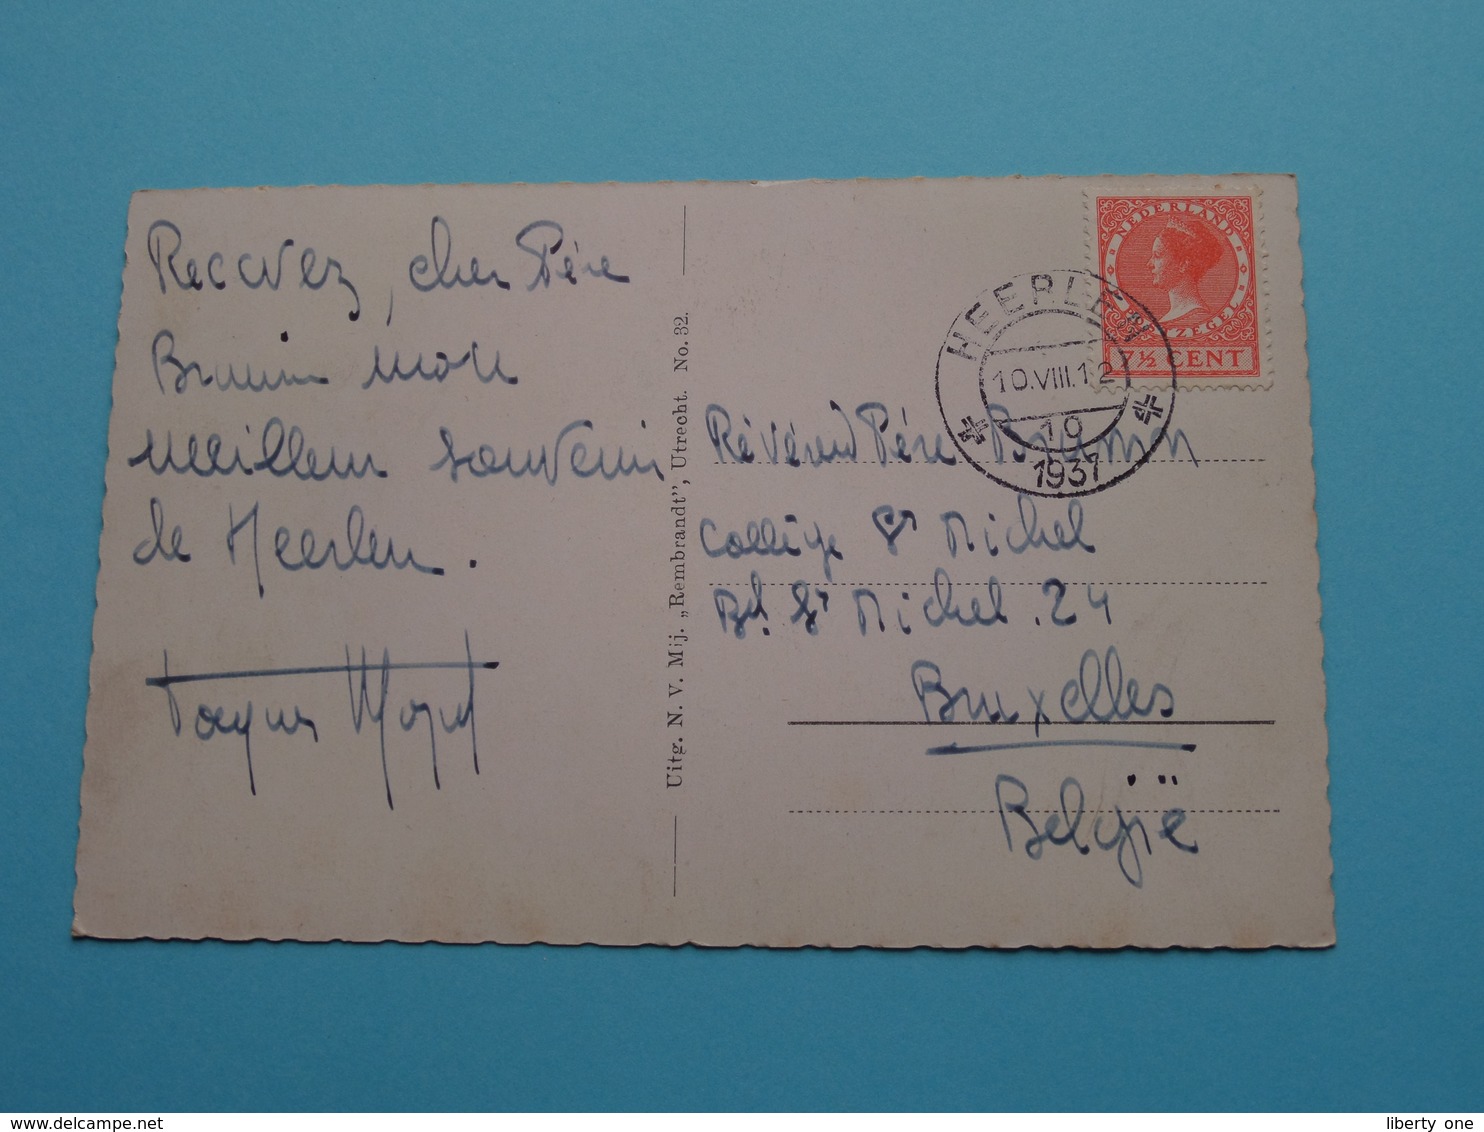 Recevez, cher Père
Brunin mon
meilleur souvenir
de Heerlen.
Jacques
Uitg. N. V. Mij. „Rembrandt”, Utrecht. No. 32.
NEDERLAND
7½ CENT
HEERLEN
10.VIII.12
19
1937
Révérend Père Brunin
Collège St Michel
Bd. St Michel. 24
Bruxelles
België
www.delcampe.net
liberty one